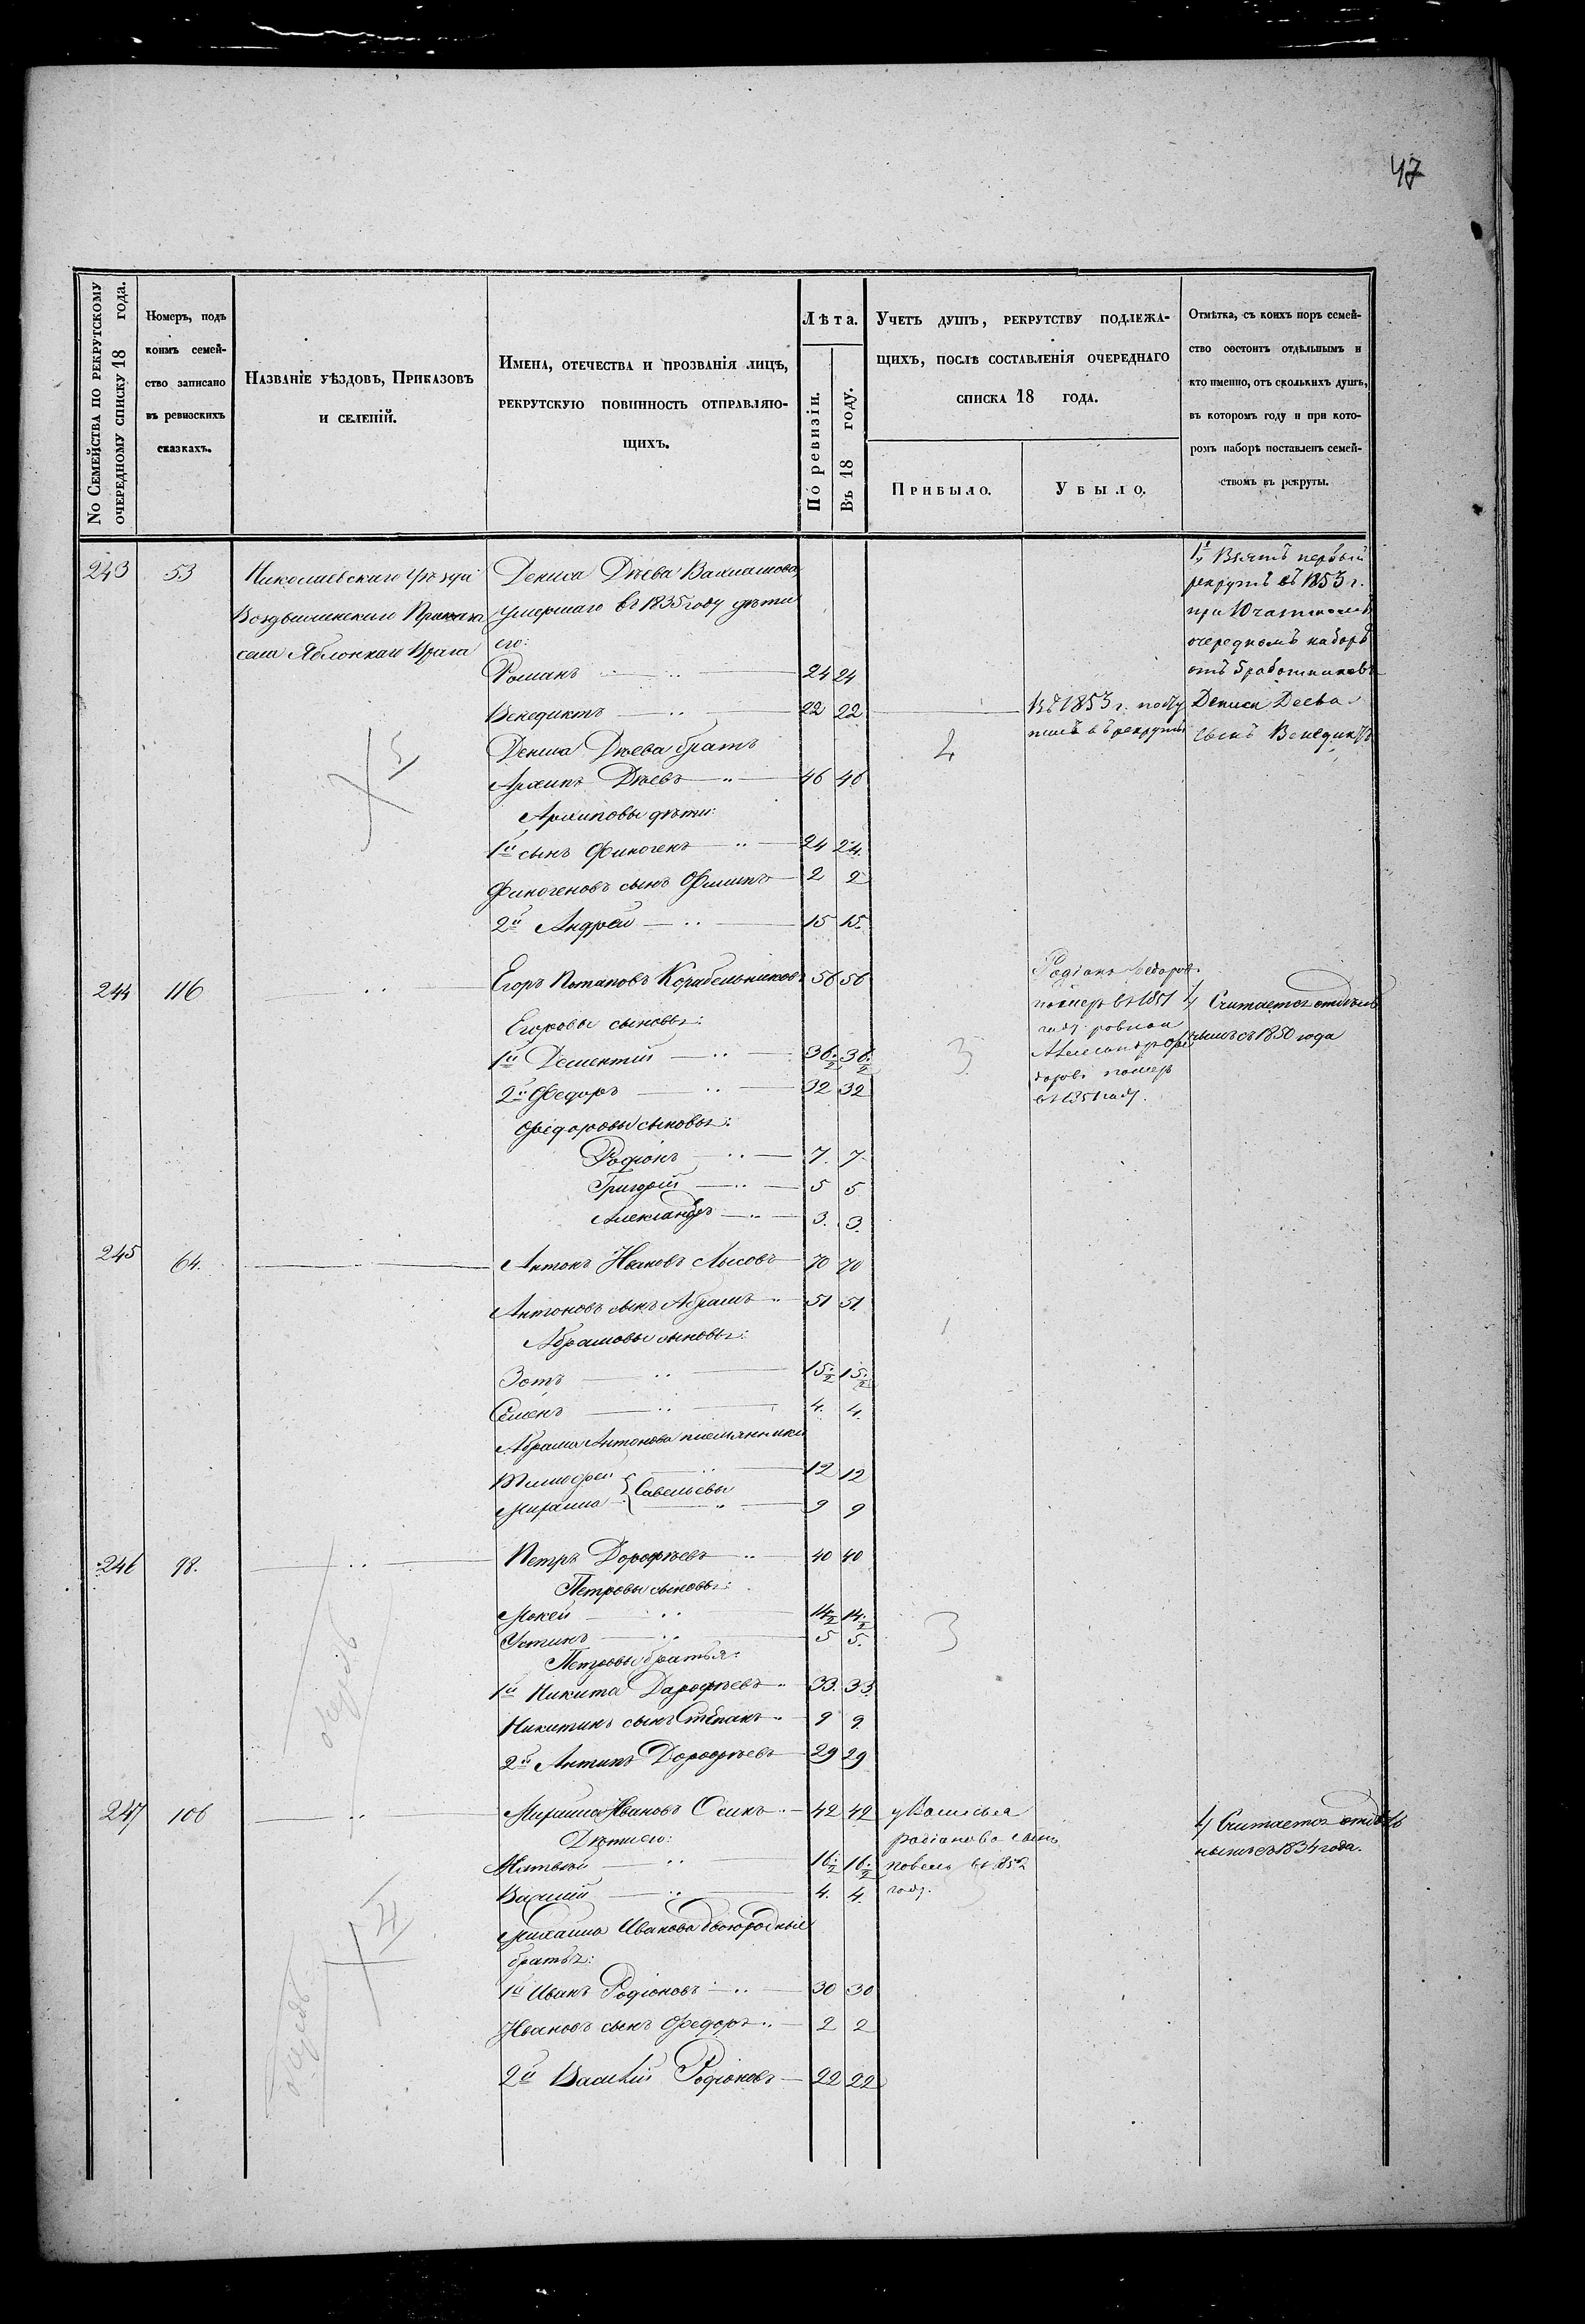 47
No Семейства по рекрутскому
очередному списку 18 года.
Номеръ, подъ
коимъ семей-
ство записано
въ ревизскихъ
сказкахъ.
Названіе уѣздовъ, Приказовъ
и селеній.
Имена, отечества и прозванія лицъ,
рекрутскую повинность отправляю-
щихъ.
Лѣта.
По ревизіи.
Въ 18 году.
Учетъ душъ, рекрутству подлежа-
щихъ, послѣ составленія очереднаго
списка 18 года.
Прибыло.
Убыло.
Отмѣтка, съ коихъ поръ семей-
ство состоитъ отдѣльнымъ и
кто именно, отъ сколькихъ душъ,
въ которомъ году и при кото-
ромъ наборѣ поставленъ семей-
ствомъ въ рекруты.
243 53 Николаевскаго Уѣзда
Воздвиженскаго Приказа
села Яблонкаго Врага
Дениса Дѣева
умершаго въ 1835 году дѣти
его:
Романъ 24 24
Венедиктъ 22 22
Дениса Дѣева братъ
Архипъ Дѣевъ 46 46
Архиповы дѣти:
1й сынъ Финогенъ 24 24.
Финогеновъ сынъ Филипъ 2 2
2й Андрей 15 15.
2
Въ 1853 г. посту
пилъ въ рекруты
Взятъ первый
рекрутъ въ 1853 г.
при 10 частномъ
очередномъ наборѣ
отъ 3 работниковъ
Дениса Деева
сынъ Венедиктъ
244 116 Егоръ Потаповъ Корабельниковъ 56 56
Егоровы сыновья:
1й Дементій 36½ 36½
2й Федоръ 32 32
Федоровы сыновья:
Родіонъ 7. 7.
Григорій 5 5
Александръ 3. 3.
3
Родіонъ Федоров.
померъ въ 1851
году
Александръ Фе
доровъ померъ
въ 1851 году.
1, Считается отдѣль
нымъ съ 1850 года
245 64. Антонъ Ивановъ Лысовъ 70 70
Антоновъ сынъ Абрамъ 51 51.
Абрамовы сыновья:
Зотъ 15½ 15½
Семенъ 4. 4.
Абрама Антонова племянники
Тимофей 12 12
Михаила Савельевы 9 9
1
246 98. Петръ Дорофѣевъ 40 40
Петровы сыновья:
Мокей 14½ 14½
Устинъ 5 5.
Петровы братья:
1й Никита Дарофѣевъ 33. 33.
Никитинъ сынъ Степанъ 9 9.
2й Антипъ Дорофѣевъ 29 29
3
247 106 Михаила Ивановъ Осинъ 42 42
Дѣти его:
Матвей 16½ 16½
Василій 4. 4.
Михаила Иванова двоюродные
братья:
1й Иванъ Родіоновъ 30 30
Ивановъ сынъ Федоръ 2 2
2й Василій Родіоновъ 22 22
у Василья
радіанова сынъ
повелъ въ 852
году.
1, Считается отдѣль
нымъ съ 1834 года.